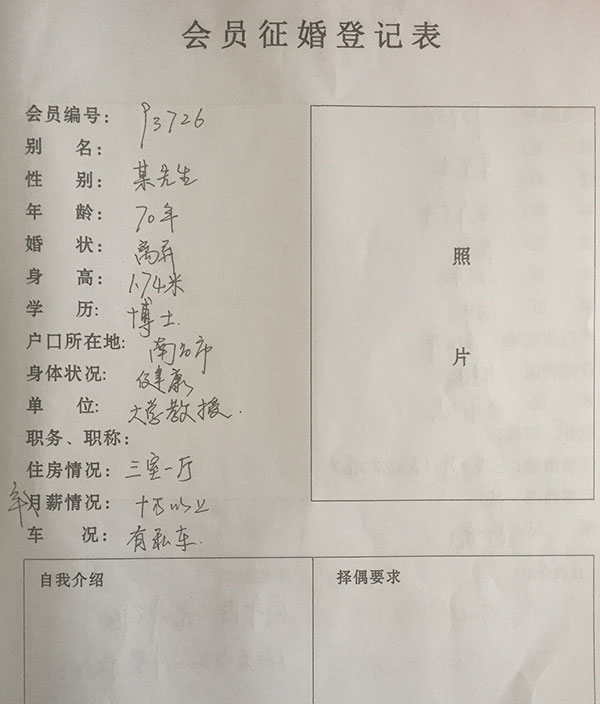 会员征婚登记表
会员编号： 93726
别 名：
性 别： 某先生
年 龄： 70年
婚 状： 离异
身 高： 1.74米
学 历： 博士.
户口所在地: 南京市
身体状况: 健康
单 位: 大学教授.
职务、职称：
住房情况： 三室一厅
年 月薪情况： 十万以上
车 况： 有私车.
照
片
自我介绍
择偶要求